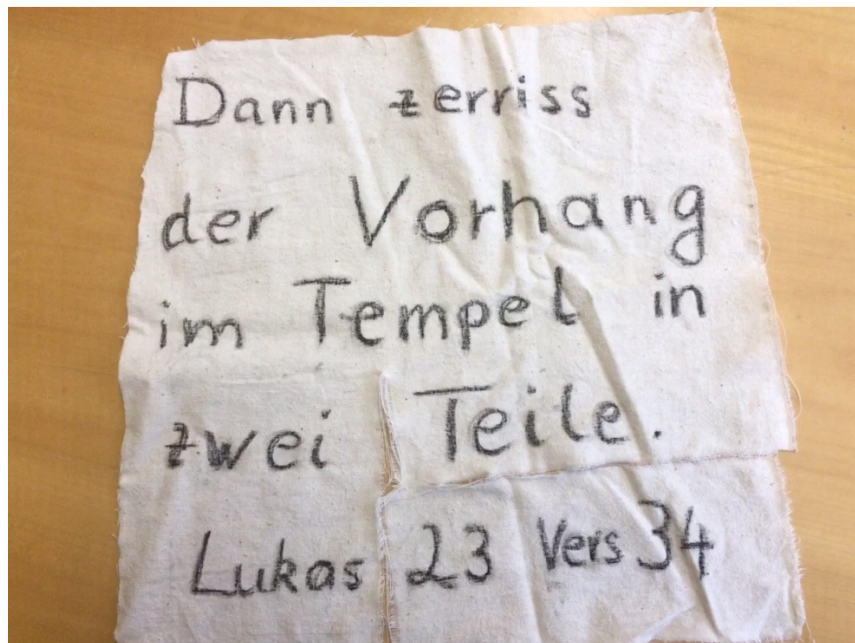 Dann zerriss
der Vorhang
im Tempel in
zwei Teile.
Lukas 23 Vers 34